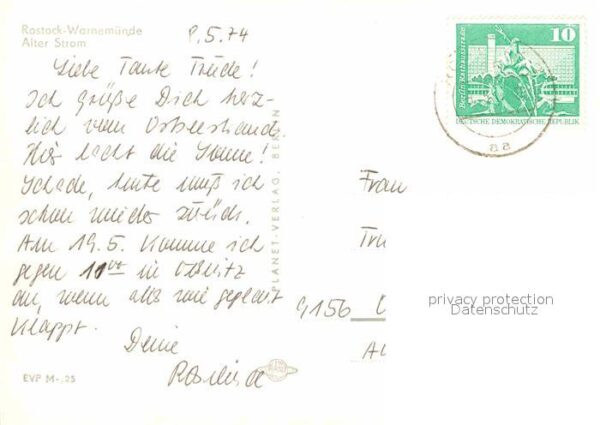 Rostock-Warnemünde
Alter Strom
8.5.74
Liebe Tante Trude!
Ich grüße Dich herz-
lich vom Ostseestrand.
Hier lacht die Sonne!
Schade, heute muß ich
schon wieder zurück.
Am 19.5. komme ich
gegen 11⁰⁰ in
an, wenn alles wie geplant
klappt.
Deine
EVP M-,25
PLANET-VERLAG, BERLIN
10
Berlin, Rathausstraße
DEUTSCHE DEMOKRATISCHE REPUBLIK
aa
Frau
Tru
9156
privacy protection
Datenschutz